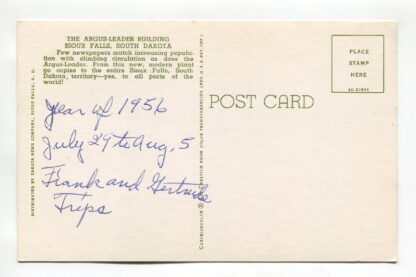 THE ARGUS-LEADER BUILDING
SIOUX FALLS, SOUTH DAKOTA
Few newspapers match increasing popula-
tion with climbing circulation as does the
Argus-Leader. From this new, modern plant
go copies to the entire Sioux Falls, South
Dakota, territory—yes, to all parts of the
world!
year of 1956
July 29 to Aug. 5
Frank and Gertrude
Trips
DISTRIBUTED BY DAKOTA NEWS COMPANY, SIOUX FALLS, S. D.
POST CARD
PLACE
STAMP
HERE